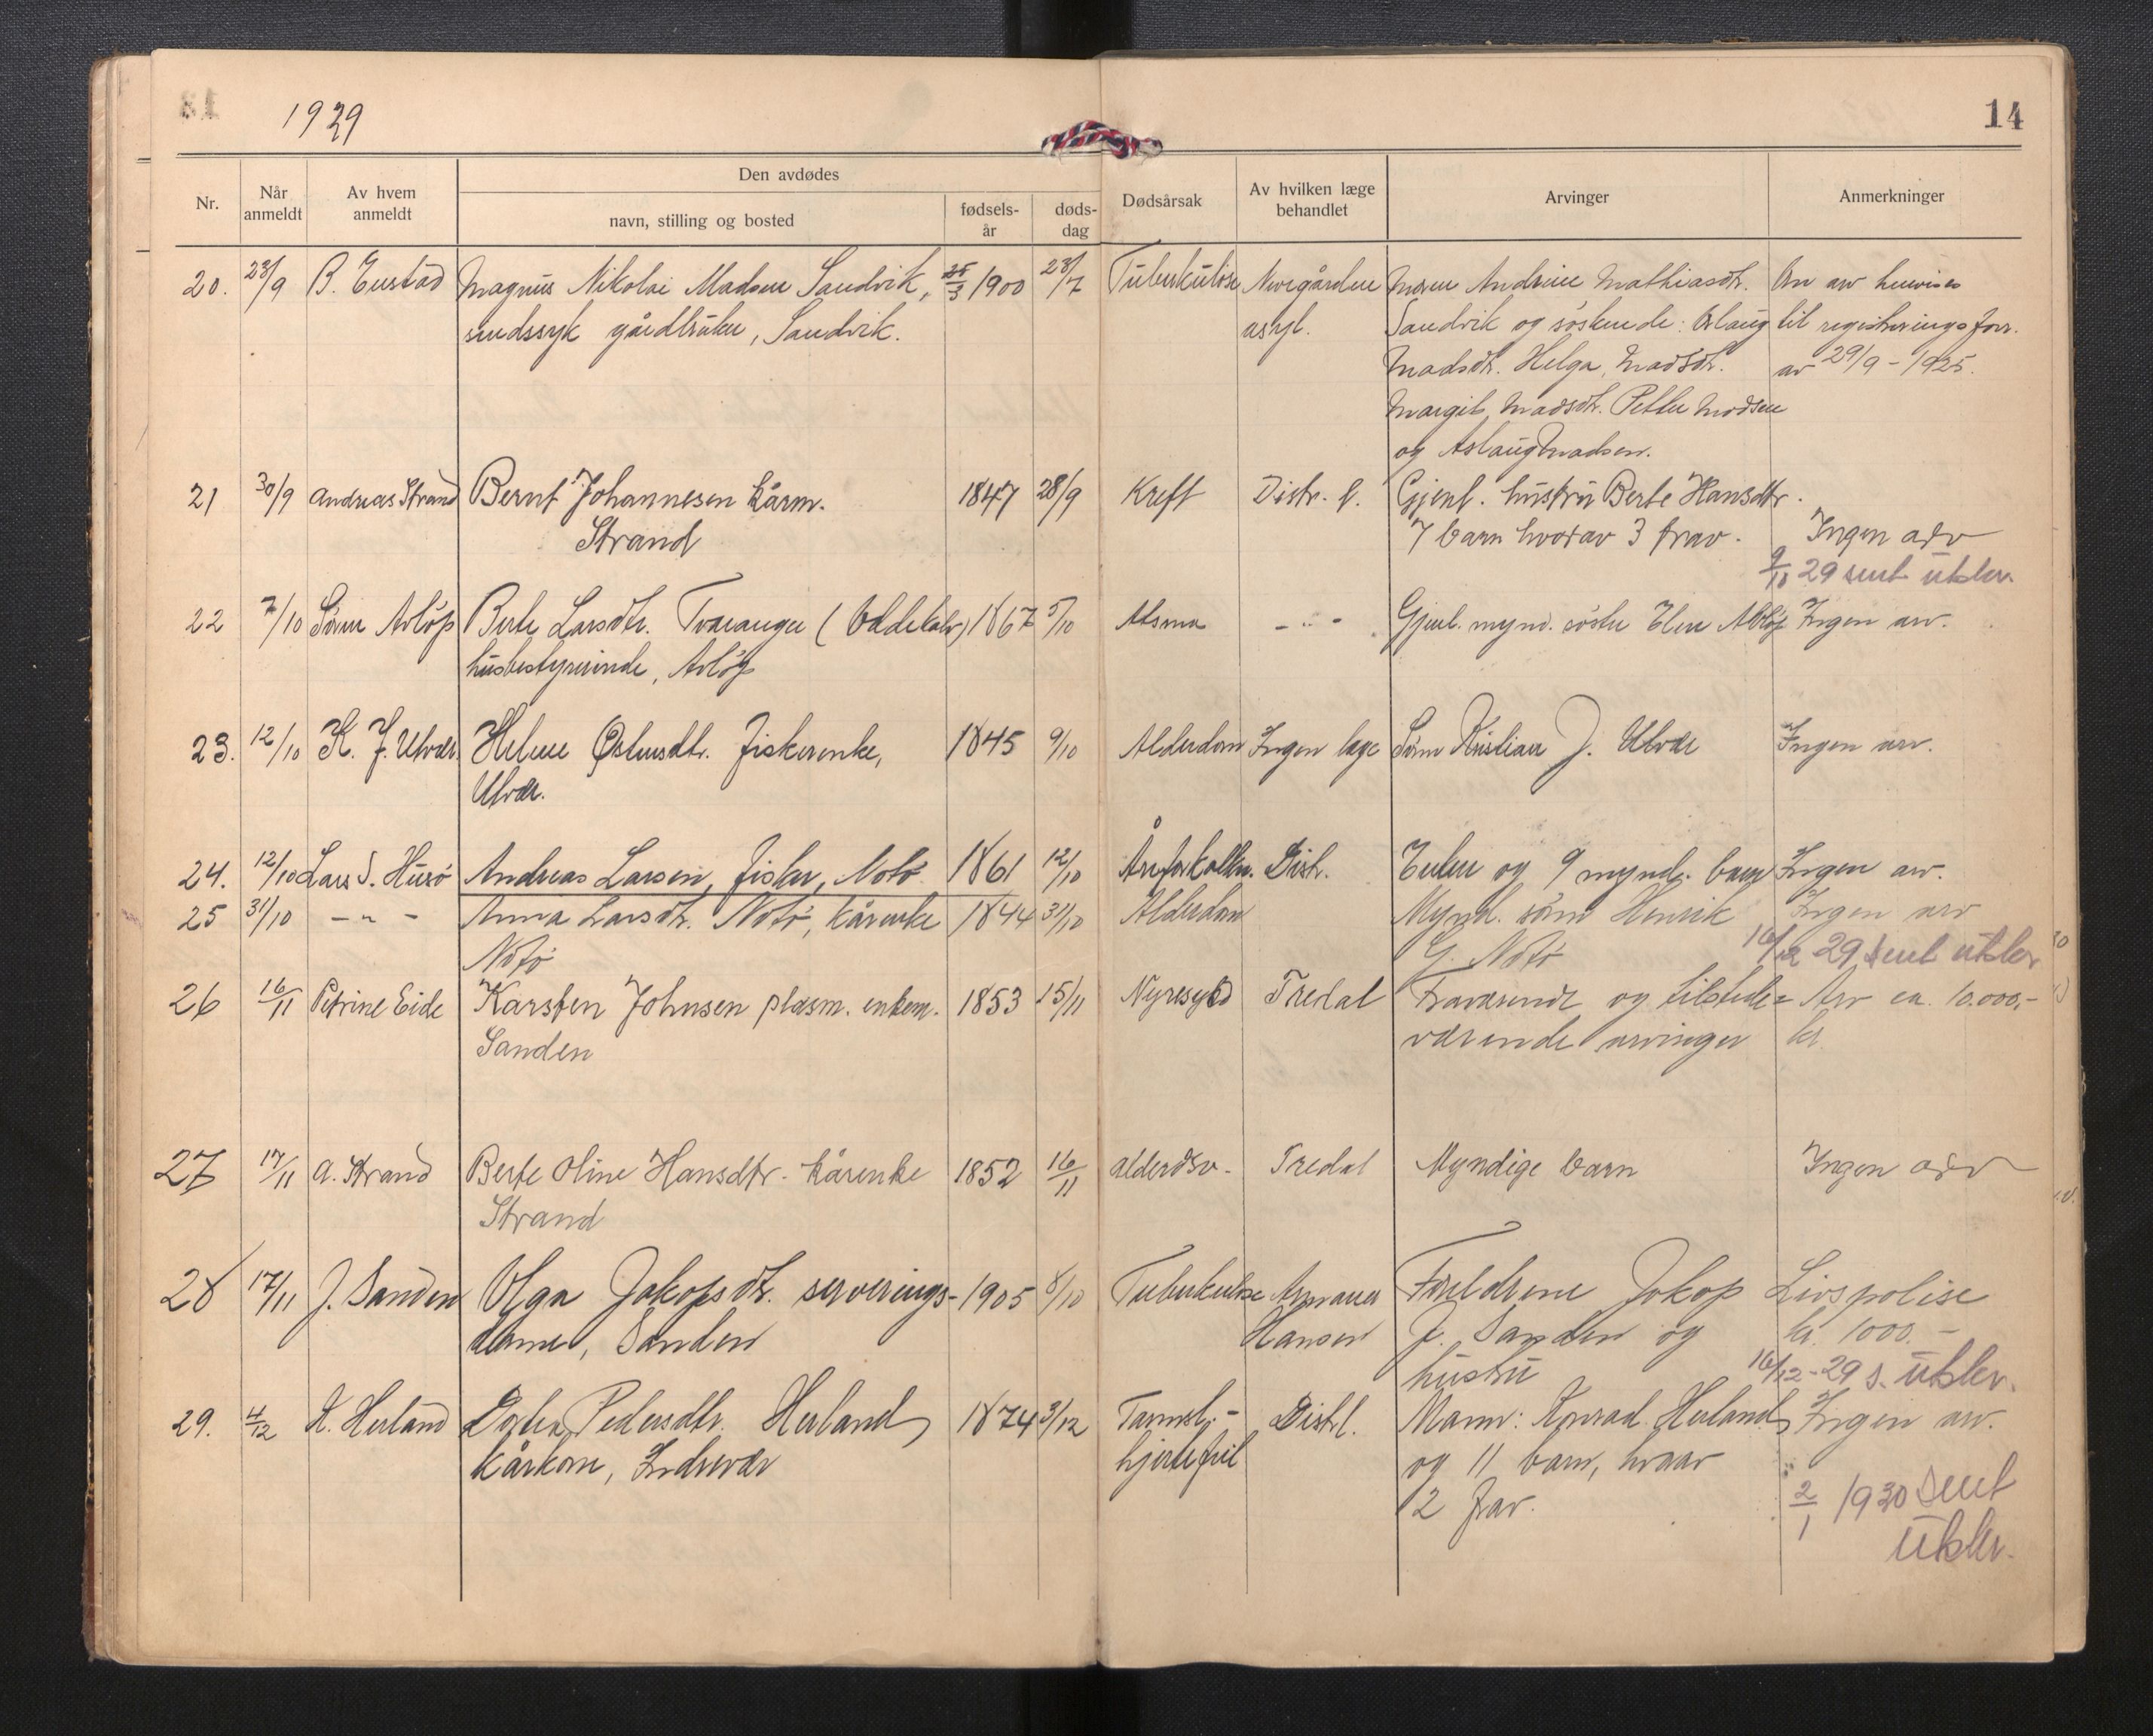 1929
14
Den avdødes
Nr. Når anmeldt Av hvem anmeldt navn, stilling og bosted fødsels-år døds-dag Dødsårsak Av hvilken læge behandlet Arvinger Anmerkninger
20. 23/9 B. Eustad Magnus Nikolai Madsen Sandvik, 25/3 1900 23/7 Tuberkulose Nevegården Moren Andrine Mathiasdtr. Om arv henvises
sindssyk gårdbruker, Sandvik. asyl. Sandvik og søskende: til registreringsforr.
Madsdtr. Helga Madsdtr. av 29/9 - 1925.
Margit Madsdtr. Petter Madsen
og Aslaug Madsen.
21 30/9 Andreas Strand Bernt Johannesen kårm. 1847 28/9 Kreft Distr. l. Gjenl. hustru Berte Hansdtr.
Strand 7 barn hvorav 3 frav. Ingen arv
9/10 29 sent utskr.
22 7/10 Sivert Avløp Berte Larsdtr. Tvaranger 1867 5/10 Atsma - " - Gjenl. mynd. søster Elen Avløp Ingen arv.
husbestyrerinde, Avløp
23. 12/10 K. J. Utvær Helene Østensdtr. Fiskerenke, 1845 9/10 Alderdom Ingen læge Sønn Kristian J. Utvær Ingen arv.
Utvær.
24. 12/10 Lars S. Husø Andreas Larsen, fisker, Notø 1861 12/10 Åreforkalkn. Distr. Enken og 9 mynd. barn Ingen arv.
25 31/10 - " - Anna Larsdtr. Notø, kårenke 1844 31/10 Alderdom Mynd. sønn Henrik Ingen arv
Notø G. Notø 16/12 29 sent utskr
26 16/11 Petrine Eide Karsten Johnsen plasm. enkem. 1853 15/11 Nyresykd Tredal Fraværende og tilstede= Arv ca. 10.000,-
Sanden værende arvinger kr.
27 17/11 A. Strand Berte Oline Hansdtr. kårenke 1852 16/11 alderdsv. Tredal Myndige barn Ingen arv
Strand
28 17/11 J. Sanden Olga Jakopsdtr. serverings- 1905 8/10 Tuberkulose Armauer Foreldrene Jakop Livspolise
dame, Sanden Hansen J. Sanden og kr. 1000.-
hustru 16/12-29 s. utskr.
29. 4/12 K. Herland Pedersdtr. Herland, 1874 3/12 Tarmsl.- Distrl. Mann: Konrad Herland, Ingen arv.
kårkone, Indrevær hjertefeil og 11 barn, hvorav
2 frav. 2/1 1930 sent
utskr.